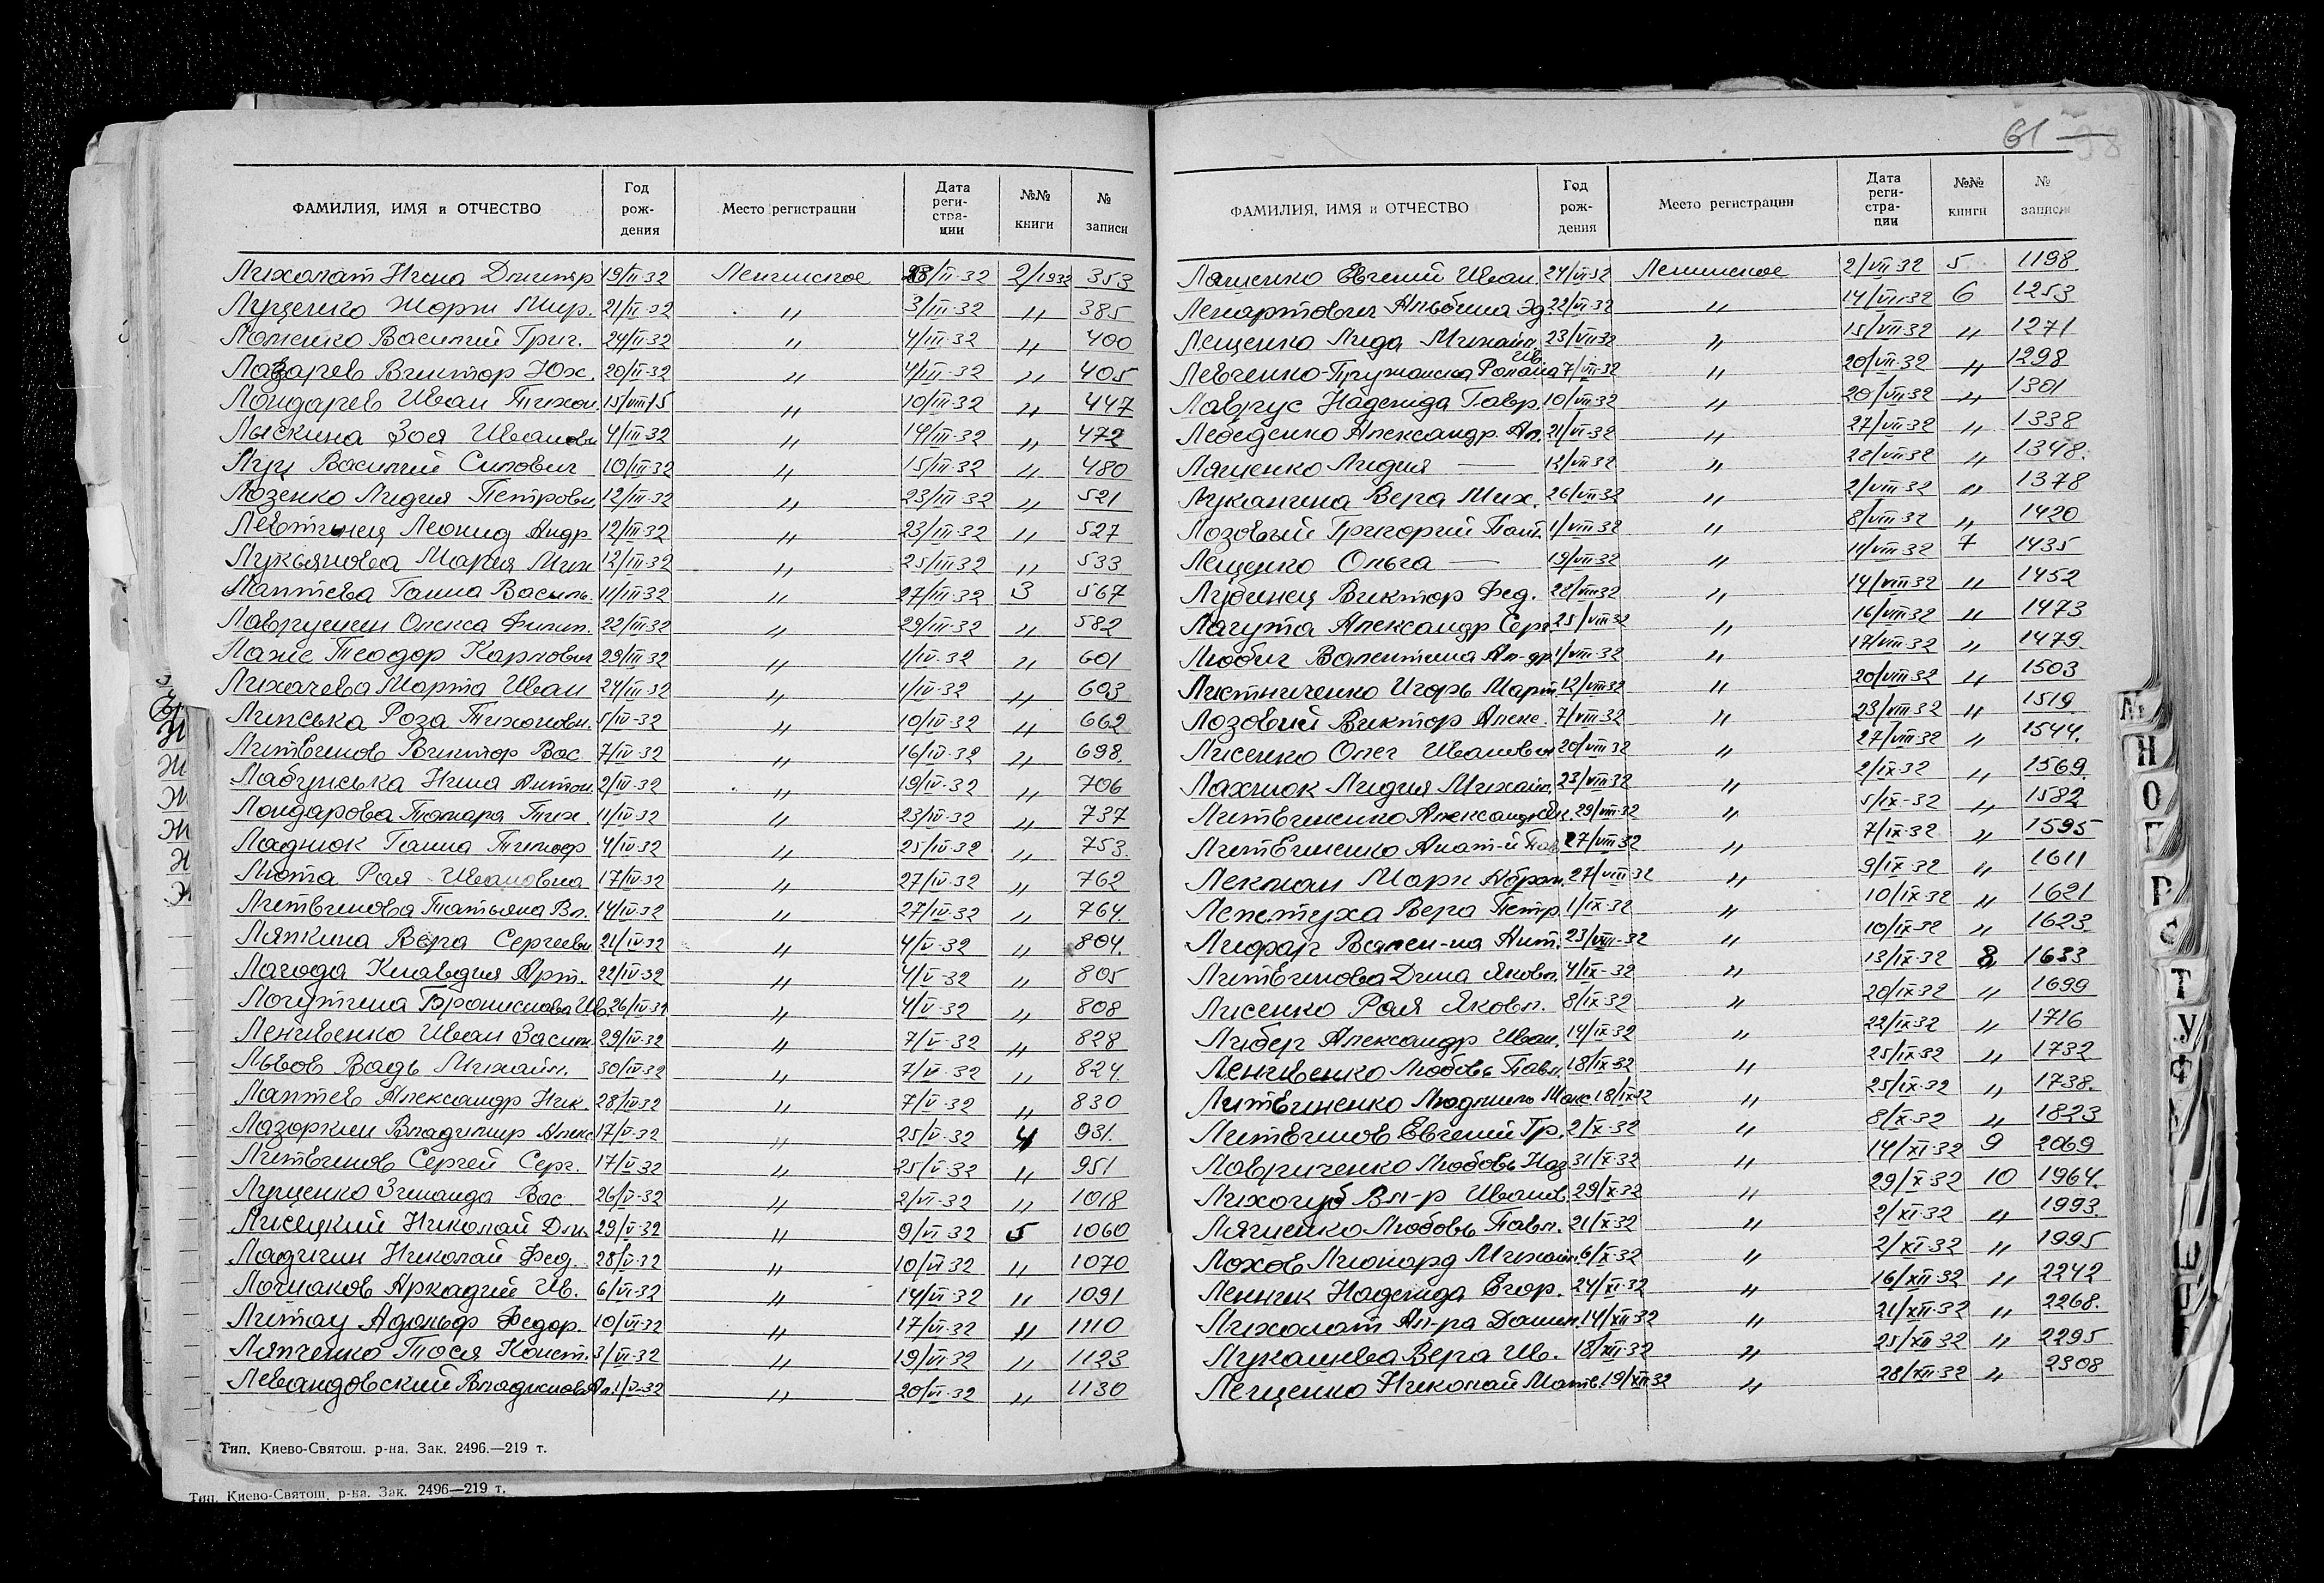 61 98
ФАМИЛИЯ, ИМЯ и ОТЧЕСТВО Год рождения Место регистрации Дата регистрации №№ книги № записи
Лихолат Нина Дмитр 19/II-32 Ленинское 28/II-32 2/1932 353
Луценко Жорж Мир. 21/II-32 " 3/III-32 " 385
Василий Григ. 24/II-32 " 4/III-32 " 400
Лазарев Виктор Юх. 20/II-32 " 4/III-32 " 405
Лондарев Иван Тихон. 15/VIII-15 " 10/III-32 " 447
Лыскина Зоя Ивановн 4/III-32 " 14/III-32 " 472
Луц Василий Силович 10/III-32 " 15/III-32 " 480
Лозенко Лидия Петровн 12/III-32 " 23/III-32 " 521
Левтинец Леонид Андр 12/III-32 " 23/III-32 " 527
Лукьянова Мария Мих 12/III-32 " 25/III-32 " 533
Лаптева Ганна Василь. 11/III-32 " 27/III-32 3 567
Лаврушин Олекса Филип. 22/III-32 " 29/III-32 " 582
Теодор Карлович 29/III-32 " 1/IV-32 " 601
Лихачева Марта Иван 24/III-32 " 1/IV-32 " 603
Липська Роза Тихоновн. 5/IV-32 " 10/IV-32 " 662
Литвинов Виктор Вас. 7/IV-32 " 16/IV-32 " 698.
Лабунська Нина Антон 2/IV-32 " 19/IV-32 " 706
Лондарова Тамара Тих. 11/IV-32 " 23/IV-32 " 737
Ладнюк Ганна Тимоф 4/IV-32 " 25/IV-32 " 753.
Люта Рая Ивановна 17/IV-32 " 27/IV-32 " 762
Литвинова Татьяна Вл. 14/IV-32 " 27/IV-32 " 764.
Ляпкина Вера Сергеевн 21/IV-32 " 4/V-32 " 804.
Лагода Клавдия Арт. 22/IV-32 " 4/V-32 " 805
Логутина Бронислава Ив. 26/IV-32 " 4/V-32 " 808
Ленивенко Иван Васил. 29/IV-32 " 7/V-32 " 828
Львов Вадь Михайл. 30/IV-32 " 7/V-32 " 824.
Лаптев Александр Ник. 28/IV-32 " 7/V-32 " 830
Лазоркин Владимир Алекс 17/V-32 " 25/V-32 4 931.
Литвинов Сергей Серг. 17/V-32 " 25/V-32 " 951
Луценко Зинаида Вас. 26/V-32 " 2/VI-32 " 1018
Лисецкий Николай Дм. 29/V-32 " 9/VI-32 5 1060
Ладигин Николай Фед. 28/V-32 " 10/VI-32 " 1070
Аркадий Ив. 6/VI-32 " 14/VI-32 " 1091
Литау Адольф Федор. 10/VI-32 " 17/VI-32 " 1110
Ляпченко Тося Конст. 3/VI-32 " 19/VI-32 " 1123
Левандовский Владислав Ал. 1/V-32 " 20/VI-32 " 1130
Тип. Киево-Святош. р-на. Зак. 2496.—219 т.
Тип. Киево-Святош. р-на. Зак. 2496—219 т.
ФАМИЛИЯ, ИМЯ и ОТЧЕСТВО Год рождения Место регистрации Дата регистрации №№ книги № записи
Лященко Евгений Иван. 24/VI-32 Ленинское 2/VII-32 5 1198
Ленартович Альбина Эд. 22/VI-32 " 14/VII-32 6 1253
Лещенко Лида Михайл. 23/VII-32 " 15/VII-32 " 1271
Левченко-Пружанска Ив. 7/VII-32 " 20/VII-32 " 1298
Лаврус Надежда Гавр. 10/VII-32 " 20/VII-32 " 1301
Лебеденко Александр. Ал. 21/VI-32 " 27/VII-32 " 1338
Ляшенко Лидия — 12/VII-32 " 28/VII-32 " 1348.
Луканина Вера Мих. 26/VII-32 " 2/VIII-32 " 1378
Лозовый Григорий Пант. 1/VIII-32 " 8/VIII-32 " 1420
Лещенко Ольга — 19/VII-32 " 11/VIII-32 7 1435
Лубинец Виктор Фед. 28/VII-32 " 14/VIII-32 " 1452
Лагута Александр Серг. 25/VIII-32 " 16/VIII-32 " 1473
Любич Валентина Ал-др 1/VIII-32 " 17/VIII-32 " 1479.
Листниченко Игорь Март. 12/VIII-32 " 20/VIII-32 " 1503
Лозовий Виктор Алекс. 7/VIII-32 " 23/VIII-32 " 1519.
Лисенко Олег Иванович 20/VIII-32 " 27/VIII-32 " 1544.
Лахнюк Лидия Михайл. 23/VIII-32 " 2/IX-32 " 1569.
Литвиненко Александр 29/VIII-32 " 5/IX-32 " 1582
Литвиненко Анат-й Пав. 27/VIII-32 " 7/IX-32 " 1595
Лекман Марк Абрам. 27/VIII-32 " 9/IX-32 " 1611
Лепетуха Вера Петр. 1/IX-32 " 10/IX-32 " 1621
Лифар Вален-на Ант. 23/VIII-32 " 10/IX-32 " 1623.
Литвинова Дина Яковл. 4/IX-32 " 13/IX-32 8 1633
Лисенко Рая Яковл. 8/IX-32 " 20/IX-32 " 1699
Либер Александр Иван. 14/IX-32 " 22/IX-32 " 1716
Ленивенко Любовь Павл. 18/IX-32 " 25/IX-32 " 1732
Литвиненко Людмила Макс. 18/IX-32 " 25/IX-32 " 1738.
Литвинов Евгений Гр. 2/X-32 " 8/X-32 " 1823
Лавриченко Любовь Наз 31/X-32 " 14/XI-32 9 2069
Лихогуб Вл-р Иванов. 29/X-32 " 29/X-32 10 1964.
Ляшенко Любовь Павл. 21/X-32 " 2/XI-32 " 1993.
Лохов Михайл. 6/X-32 " 2/XI-32 " 1995
Надежда Егор. 24/XI-32 " 16/XII-32 " 2242
Лихолат Ал-ра Данил. 14/XII-32 " 21/XII-32 " 2268.
Вера Ив. 18/XII-32 " 25/XII-32 " 2295
Лещенко Николай Матв. 19/XII-32 " 28/XII-32 " 2308
М
Н
О
П
Р
С
Т
У
Ф